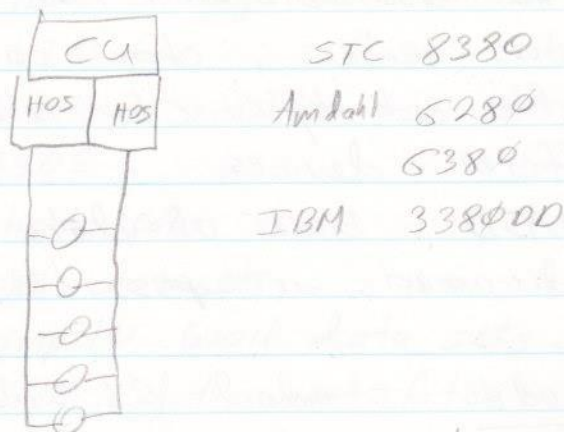 CU
HOS HOS
STC 8380
Amdahl 6280
6380
IBM 3380DD